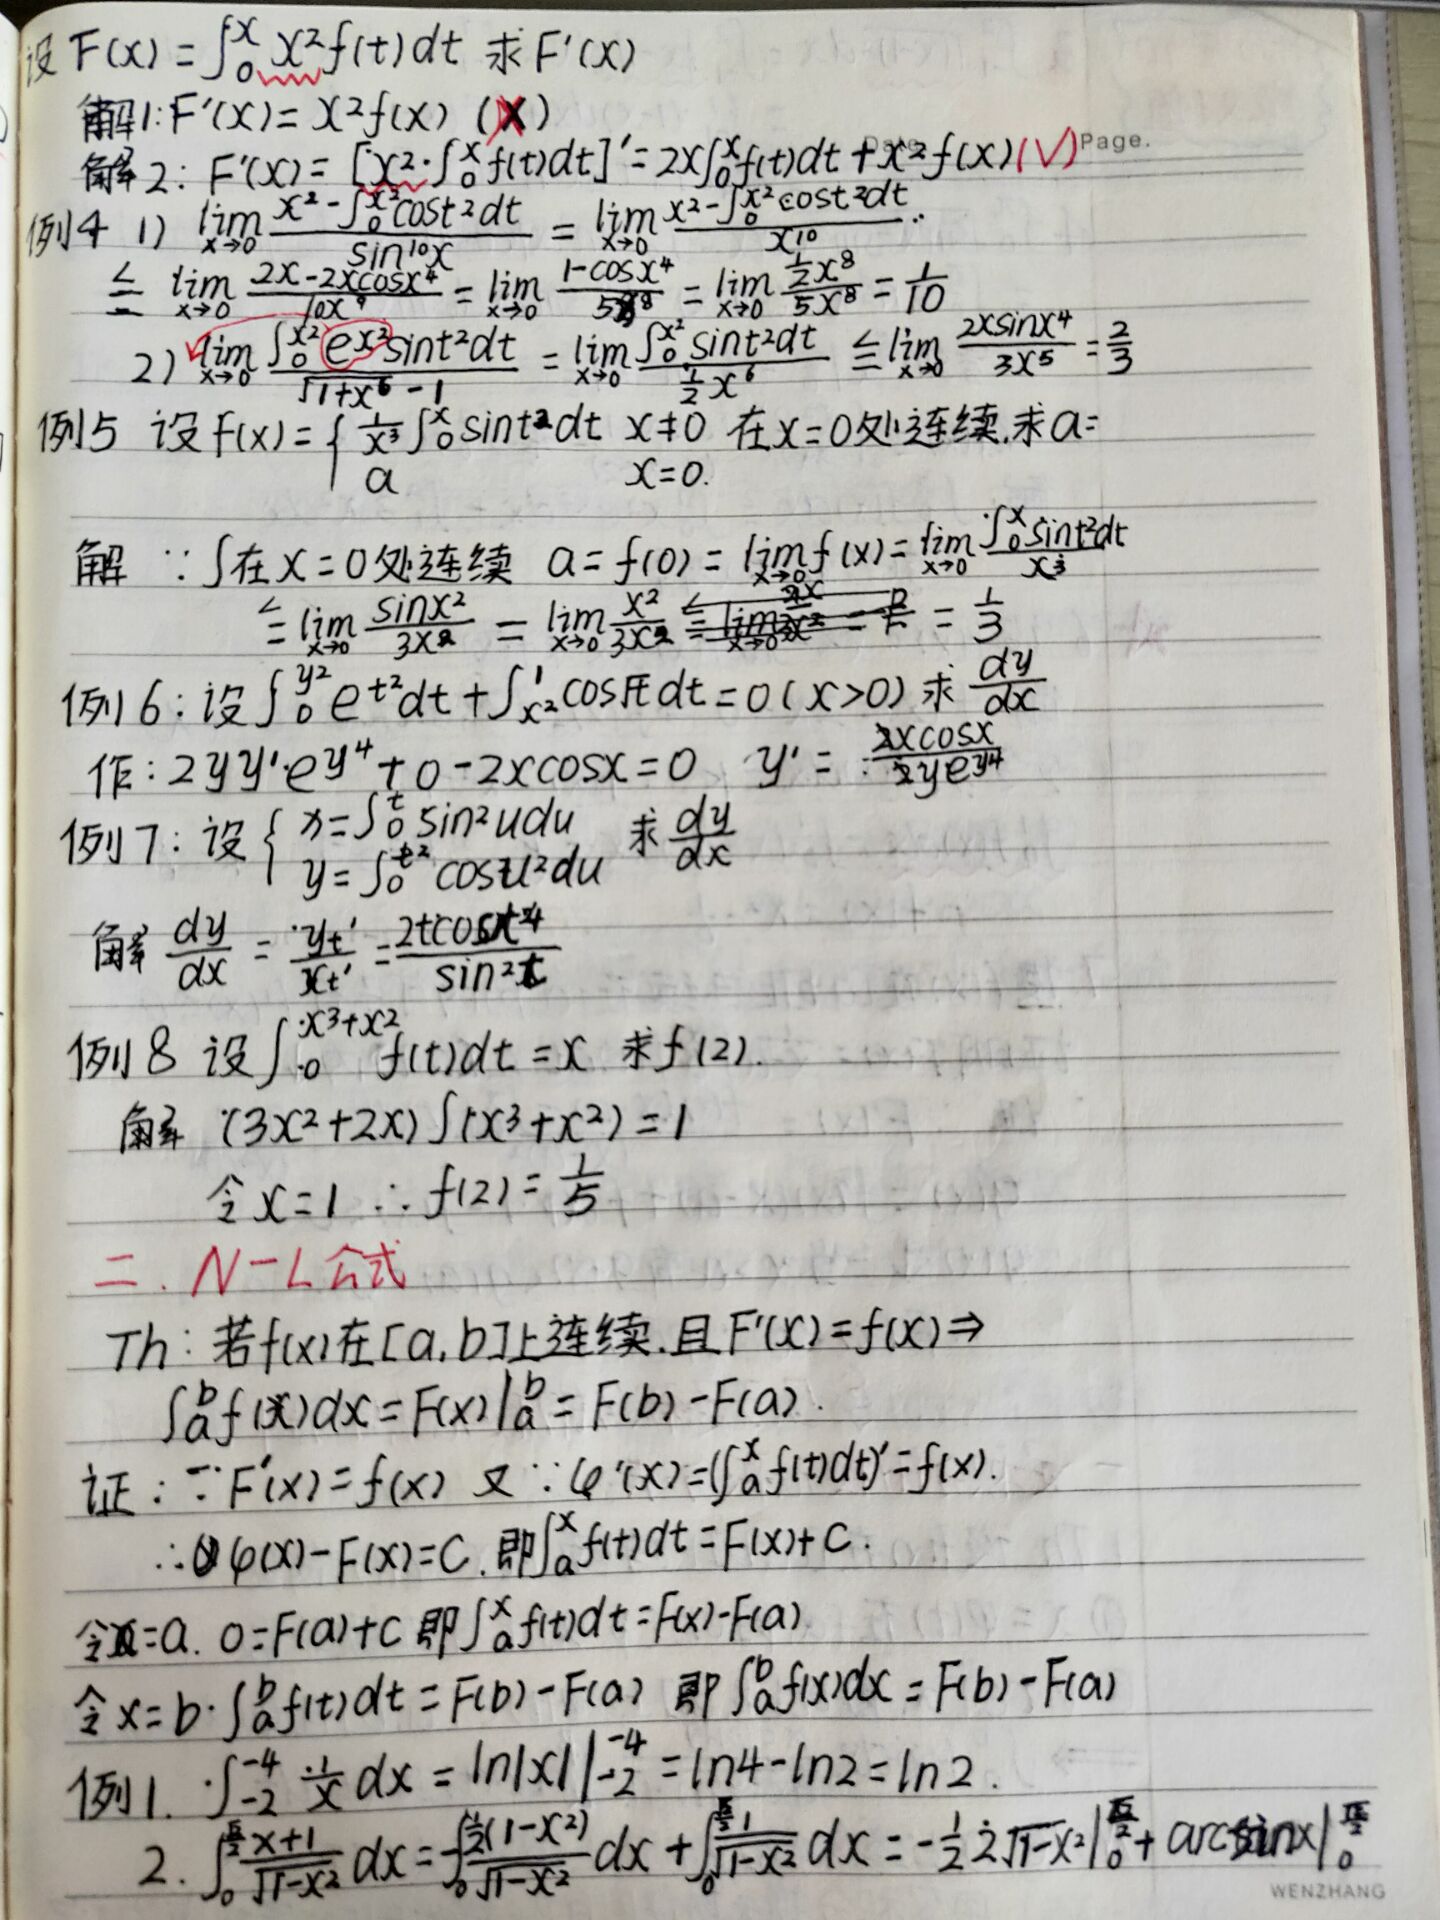 设F(x)=∫₀ˣ x²f(t)dt 求F'(x)
解1:F'(x)=x²f(x) (×)
Page.
解2:F'(x)=[x²·∫₀ˣ f(t)dt]'=2x∫₀ˣ f(t)dt+x²f(x)(√)
例4 1) lim_{x→0} (x²-∫₀^{x²}cost²dt)/(sin¹⁰x) = lim_{x→0} (x²-∫₀^{x²}cost²dt)/x¹⁰
≤= lim_{x→0} (2x-2xcosx⁴)/(10x⁹) = lim_{x→0} (1-cosx⁴)/(5x⁸) = lim_{x→0} (½x⁸)/(5x⁸) = 1/10
2) lim_{x→0} (∫₀^{x²}e^{x²}sint²dt)/(√(1+x⁶)-1) = lim_{x→0} (∫₀^{x²}sint²dt)/(½x⁶) ≤= lim_{x→0} (2xsinx⁴)/(3x⁵) = 2/3
例5 设f(x)={ (1/x³)∫₀ˣsint²dt x≠0 在x=0处连续.求a=
a x=0.
解 ∵ f在x=0处连续 a=f(0)=lim_{x→0}f(x)=lim_{x→0} (∫₀ˣsint²dt)/x³
≤= lim_{x→0} (sinx²)/(3x²) = lim_{x→0} x²/(3x²) = 1/3
例6:设∫₀^{y²}e^{t²}dt+∫_{x²}^{1}cos√t dt=0(x>0) 求 dy/dx
作:2yy'·e^{y⁴}+0-2xcosx=0 y'= (2xcosx)/(2ye^{y⁴})
例7:设{ x=∫₀ᵗsin²udu 求 dy/dx
y=∫₀^{t²}cosu²du
解 dy/dx = yt'/xt' = (2tcost⁴)/(sin²t)
例8 设∫₀^{x³+x²} f(t)dt=x 求f(2).
解 (3x²+2x)f(x³+x²)=1
令x=1 ∴f(2)=1/5
二. N-L公式
Th:若f(x)在[a,b]上连续.且F'(x)=f(x)⇒
∫ₐᵇf(x)dx=F(x)|ₐᵇ=F(b)-F(a).
证:∵F'(x)=f(x) 又∵φ'(x)=(∫ₐˣf(t)dt)'=f(x).
∴φ(x)-F(x)=C.即∫ₐˣf(t)dt=F(x)+C.
令x=a. 0=F(a)+C 即∫ₐˣf(t)dt=F(x)-F(a)
令x=b·∫ₐᵇf(t)dt=F(b)-F(a) 即∫ₐᵇf(x)dx=F(b)-F(a)
例1. ∫₋₂⁻⁴ 1/x dx = ln|x||₋₂⁻⁴=ln4-ln2=ln2.
2. ∫₀^{√2/2} (x+1)/√(1-x²) dx=-∫₀ ½(1-x²)/√(1-x²) dx+∫₀^{√2/2} 1/√(1-x²) dx=-½·2√(1-x²)|₀^{√2/2}+arcsinx|₀^{√2/2}
WENZHANG